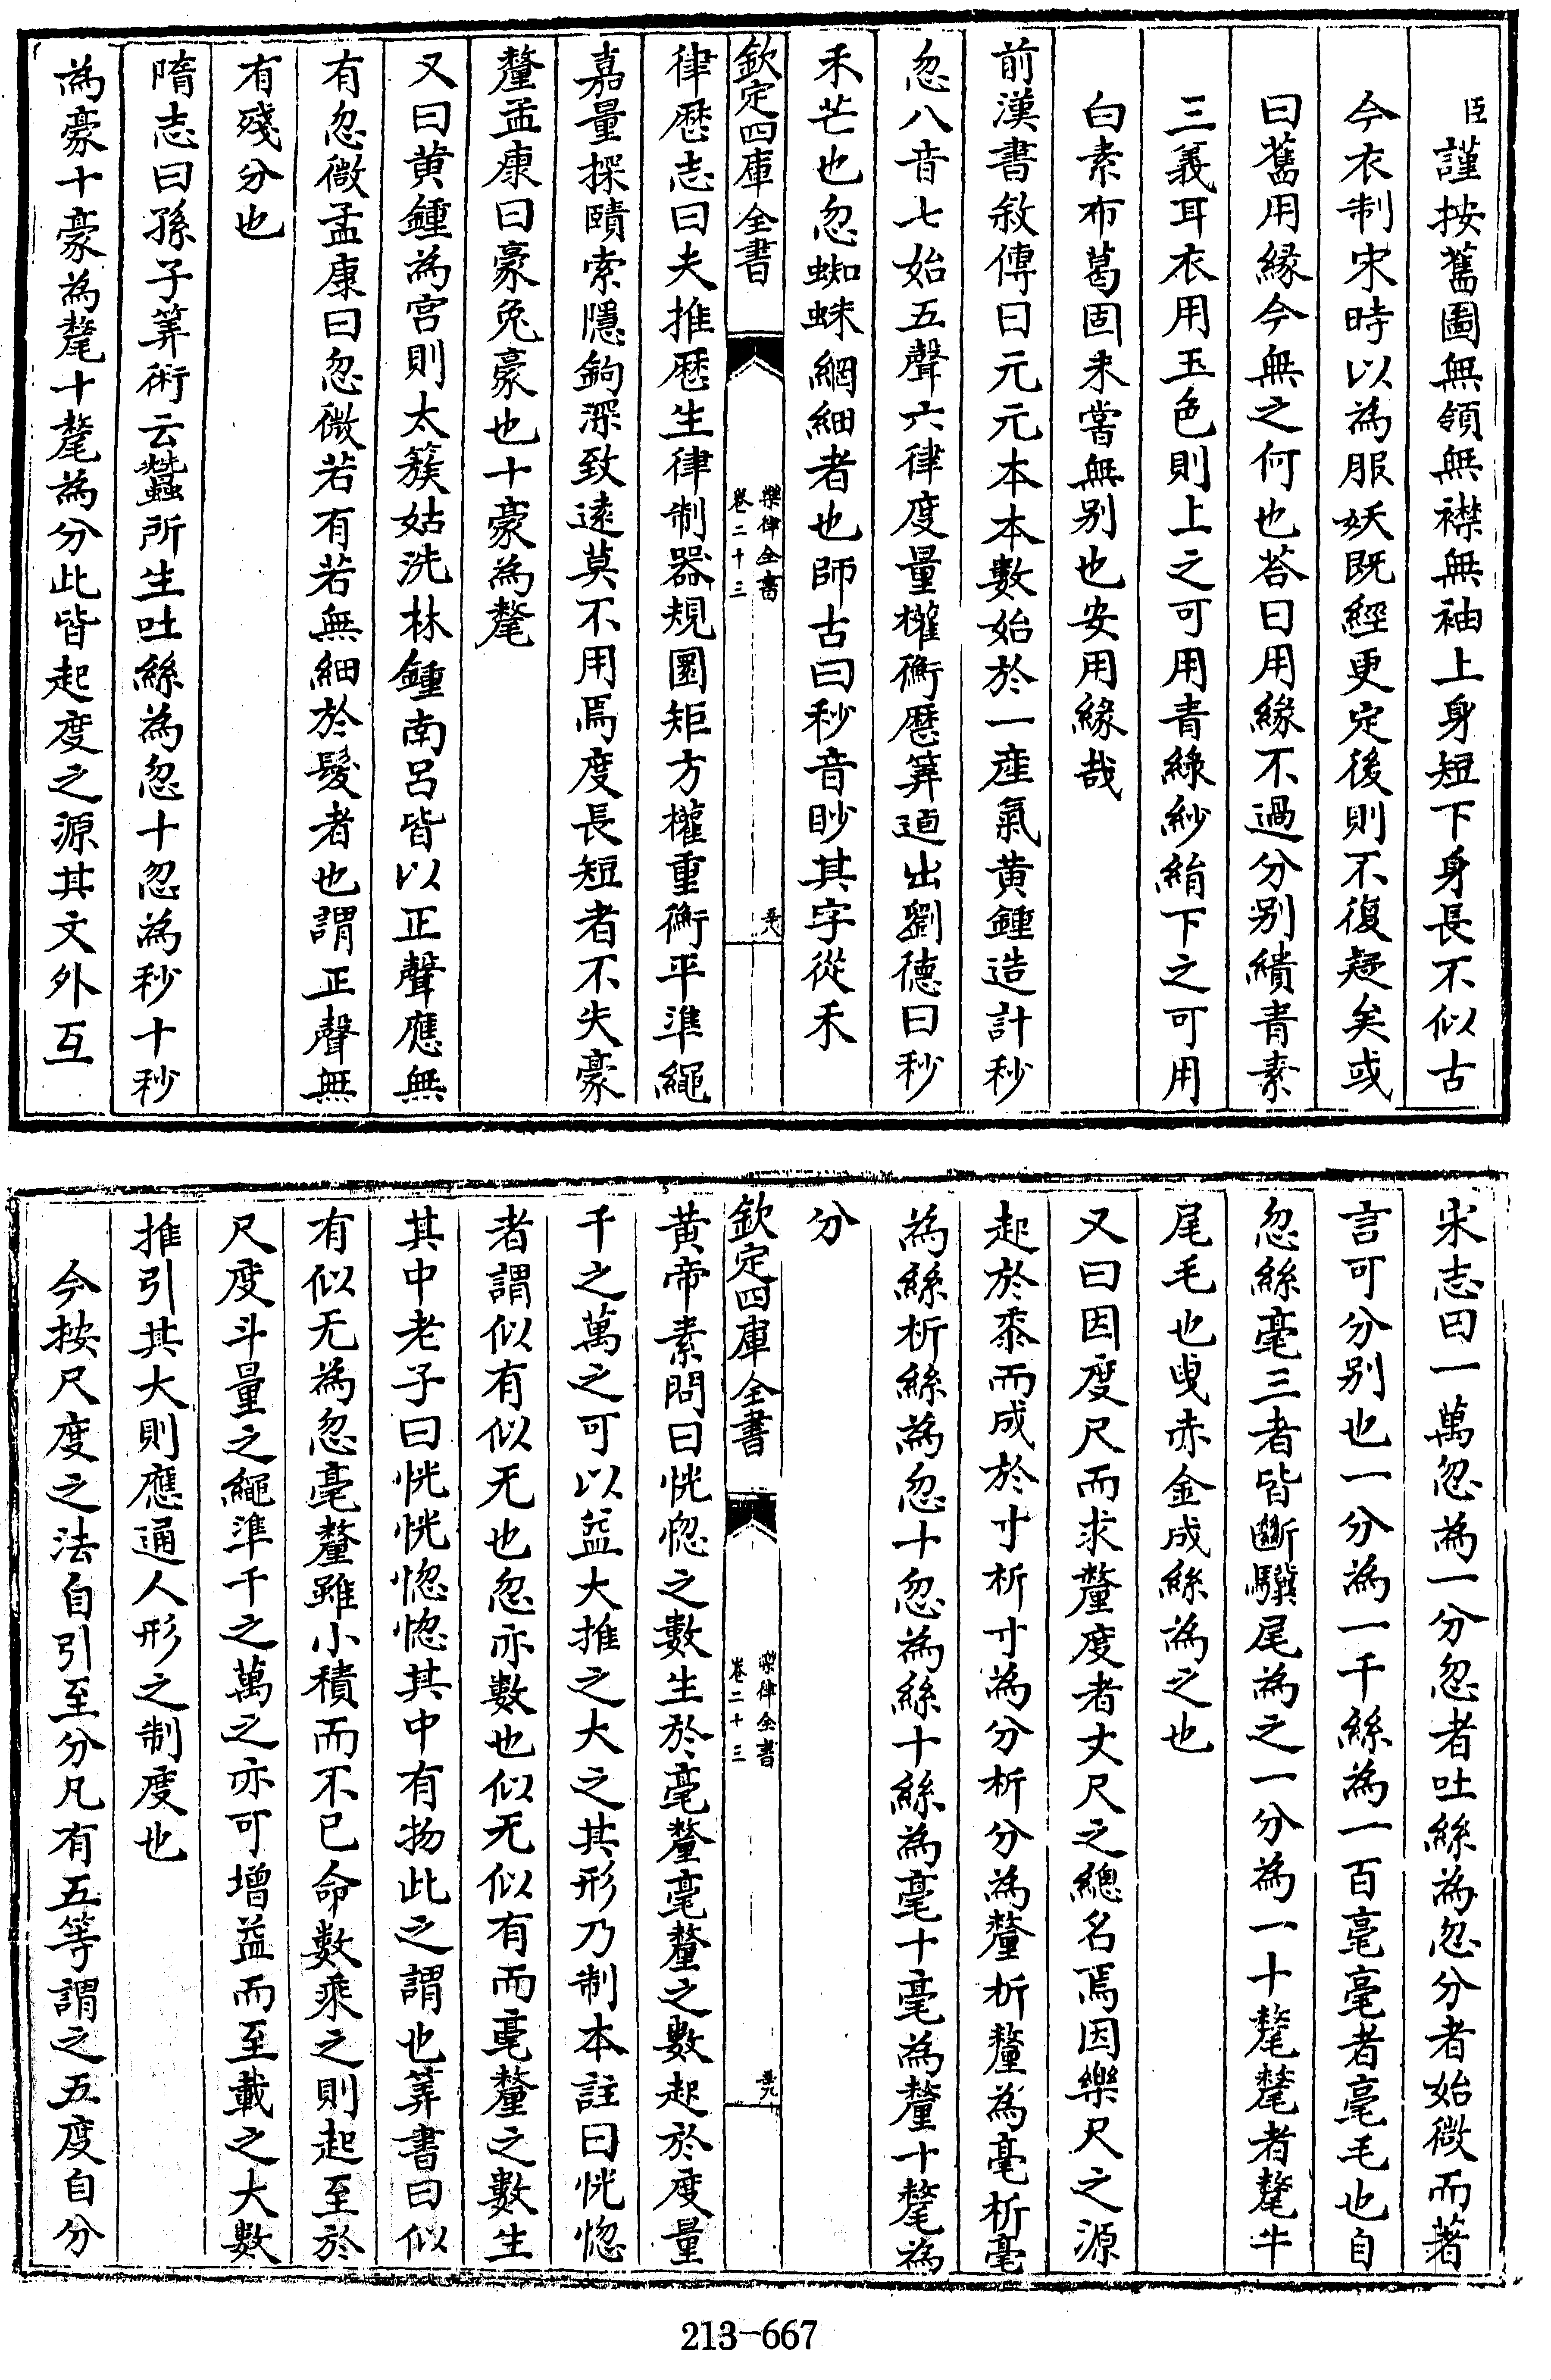 臣謹按舊圖無領無襟無袖上身短下身長不似古
今衣制宋時以為服妖既經更定後則不復疑矣或
曰舊用緣今無之何也荅曰用緣不過分别繢青素
三義耳衣用玉色則上之可用青綠紗絹下之可用
白素布葛固未嘗無别也安用緣哉
前漢書敘傳曰元元本本數始於一産氣黄鍾造計秒
忽八音七始五聲六律度量權衡厯筭逌出劉德曰秒
禾芒也忽蜘蛛網細者也師古曰秒音眇其字從禾
欽定四庫全書
樂律全書
卷二十三
五八
律厯志曰夫推厯生律制器規圜矩方權重衡平準繩
嘉量探賾索隱鉤深致遠莫不用焉度長短者不失豪
釐孟康曰豪兔豪也十豪為氂
又曰黄鍾為宫則太簇姑洗林鍾南吕皆以正聲應無
有忽微孟康曰忽微若有若無細於髮者也謂正聲無
有殘分也
隋志曰孫子筭術云蠶所生吐絲為忽十忽為秒十秒
為豪十豪為氂十氂為分此皆起度之源其文舛互
宋志曰一萬忽為一分忽者吐絲為忽分者始微而著
言可分别也一分為一千絲為一百毫毫者毫毛也自
忽絲毫三者皆斷驥尾為之一分為一十氂氂者氂牛
尾毛也曳赤金成絲為之也
又曰因度尺而求釐度者丈尺之總名焉因樂尺之源
起於黍而成於寸析寸為分析分為釐析釐為毫析毫
為絲析絲為忽十忽為絲十絲為毫十毫為釐十氂為
分
欽定四庫全書
樂律全書
卷二十三
五九
黄帝素問曰恍惚之數生於毫釐毫釐之數起於度量
千之萬之可以益大推之大之其形乃制本註曰恍惚
者謂似有似无也忽亦數也似无似有而毫釐之數生
其中老子曰恍恍惚惚其中有物此之謂也筭書曰似
有似无為忽毫釐雖小積而不已命數乘之則起至於
尺度斗量之繩準千之萬之亦可增益而至載之大數
推引其大則應通人形之制度也
今按尺度之法自引至分凡有五等謂之五度自分
213-667